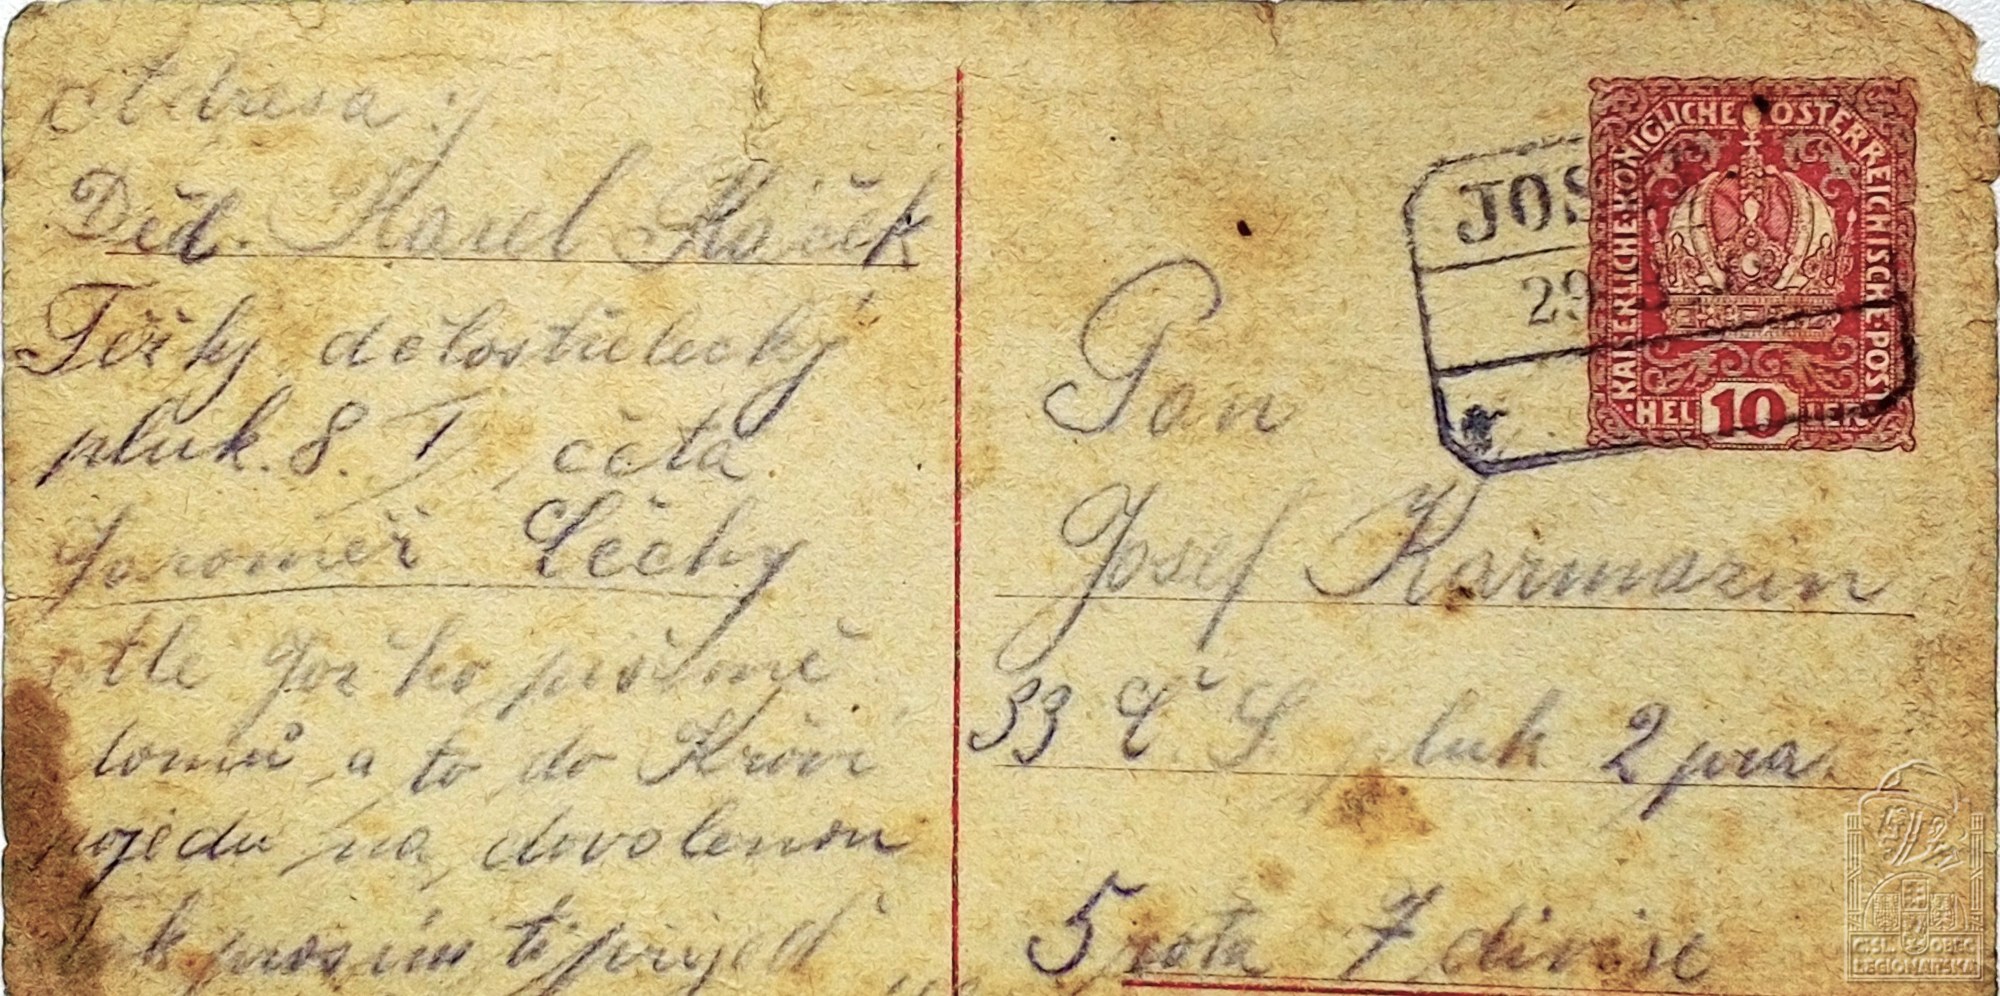 Adresa :/
Děl. Karel Kaček
Těžký dělostřelecký
pluk. 8. I/ četa
Jaroměř Čechy
Ale Jožko piš mě
domů a to do
pojedu na dovolenou
tak prosím tě přijeď
KAISERLICHE·KÖNIGLICHE ÖSTERREICHISCHE·POST
HELLER 10
JOS
29
Pan
Josef Karmazin
33 Č. S. pluk 2 pra.
5 rota 7 divise
Č.SL. OBEC
LEGIONÁŘSKÁ